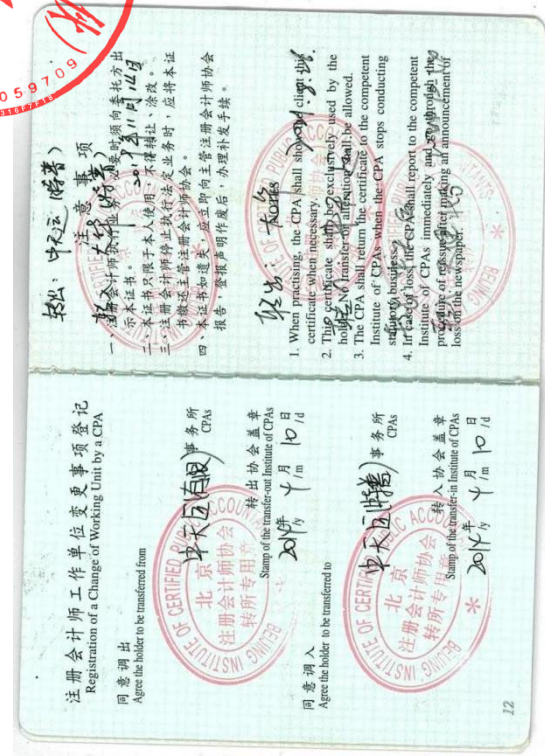 注册会计师工作单位变更事项登记
Registration of a Change of Working Unit by a CPA
同意调出
Agree the holder to be transferred from
中天运(有限)
事务所
CPAs
转出协会盖章
Stamp of the transfer-out Institute of CPAs
2014年 4月 10日
/y /m /d
BEIJING INSTITUTE OF CERTIFIED PUBLIC ACCOUNTANTS
北京
注册会计师协会
转所专用章
同意调入
Agree the holder to be transferred to
中天运(特普)
事务所
CPAs
转入协会盖章
Stamp of the transfer-in Institute of CPAs
2014年 4月 10日
/y /m /d
BEIJING INSTITUTE OF CERTIFIED PUBLIC ACCOUNTANTS
北京
注册会计师协会
转所专用章
12
转出:中天运(特普)
注意事项
一、注册会计师执行业务,必要时须向委托方出
示本证书。
二、本证书只限于本人使用,不得转让、涂改。
三、注册会计师停止执行法定业务时,应将本证
书缴还主管注册会计师协会。
四、本证书如遗失,应立即向主管注册会计师协会
报告,登报声明作废后,办理补发手续。
Notes
1. When practising, the CPA shall show the client this
certificate when necessary.
2. This certificate shall be exclusively used by the
holder. No transfer or alteration shall be allowed.
3. The CPA shall return the certificate to the competent
Institute of CPAs when the CPA stops conducting
statutory business.
4. In case of loss, the CPA shall report to the competent
Institute of CPAs immediately and go through the
procedure of reissue after making an announcement of
loss on the newspaper.
059709